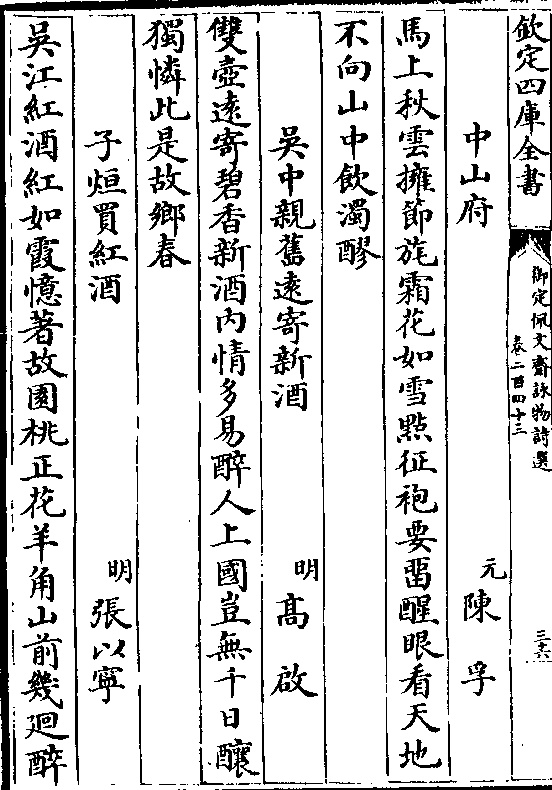 欽定四庫全書
御定佩文齋詠物詩選
卷二百四十三
三六
中山府 元 陳孚
馬上秋雲擁節旄霜花如雪點征袍要畱醒眼看天地
不向山中飲濁醪
吳中親舊遠寄新酒 明 高啟
雙壺遠寄碧香新酒內情多易醉人上國豈無千日釀
獨憐此是故鄉春
子烜買紅酒 明 張以寧
吳江紅酒紅如霞憶著故園桃正花羊角山前幾廻醉